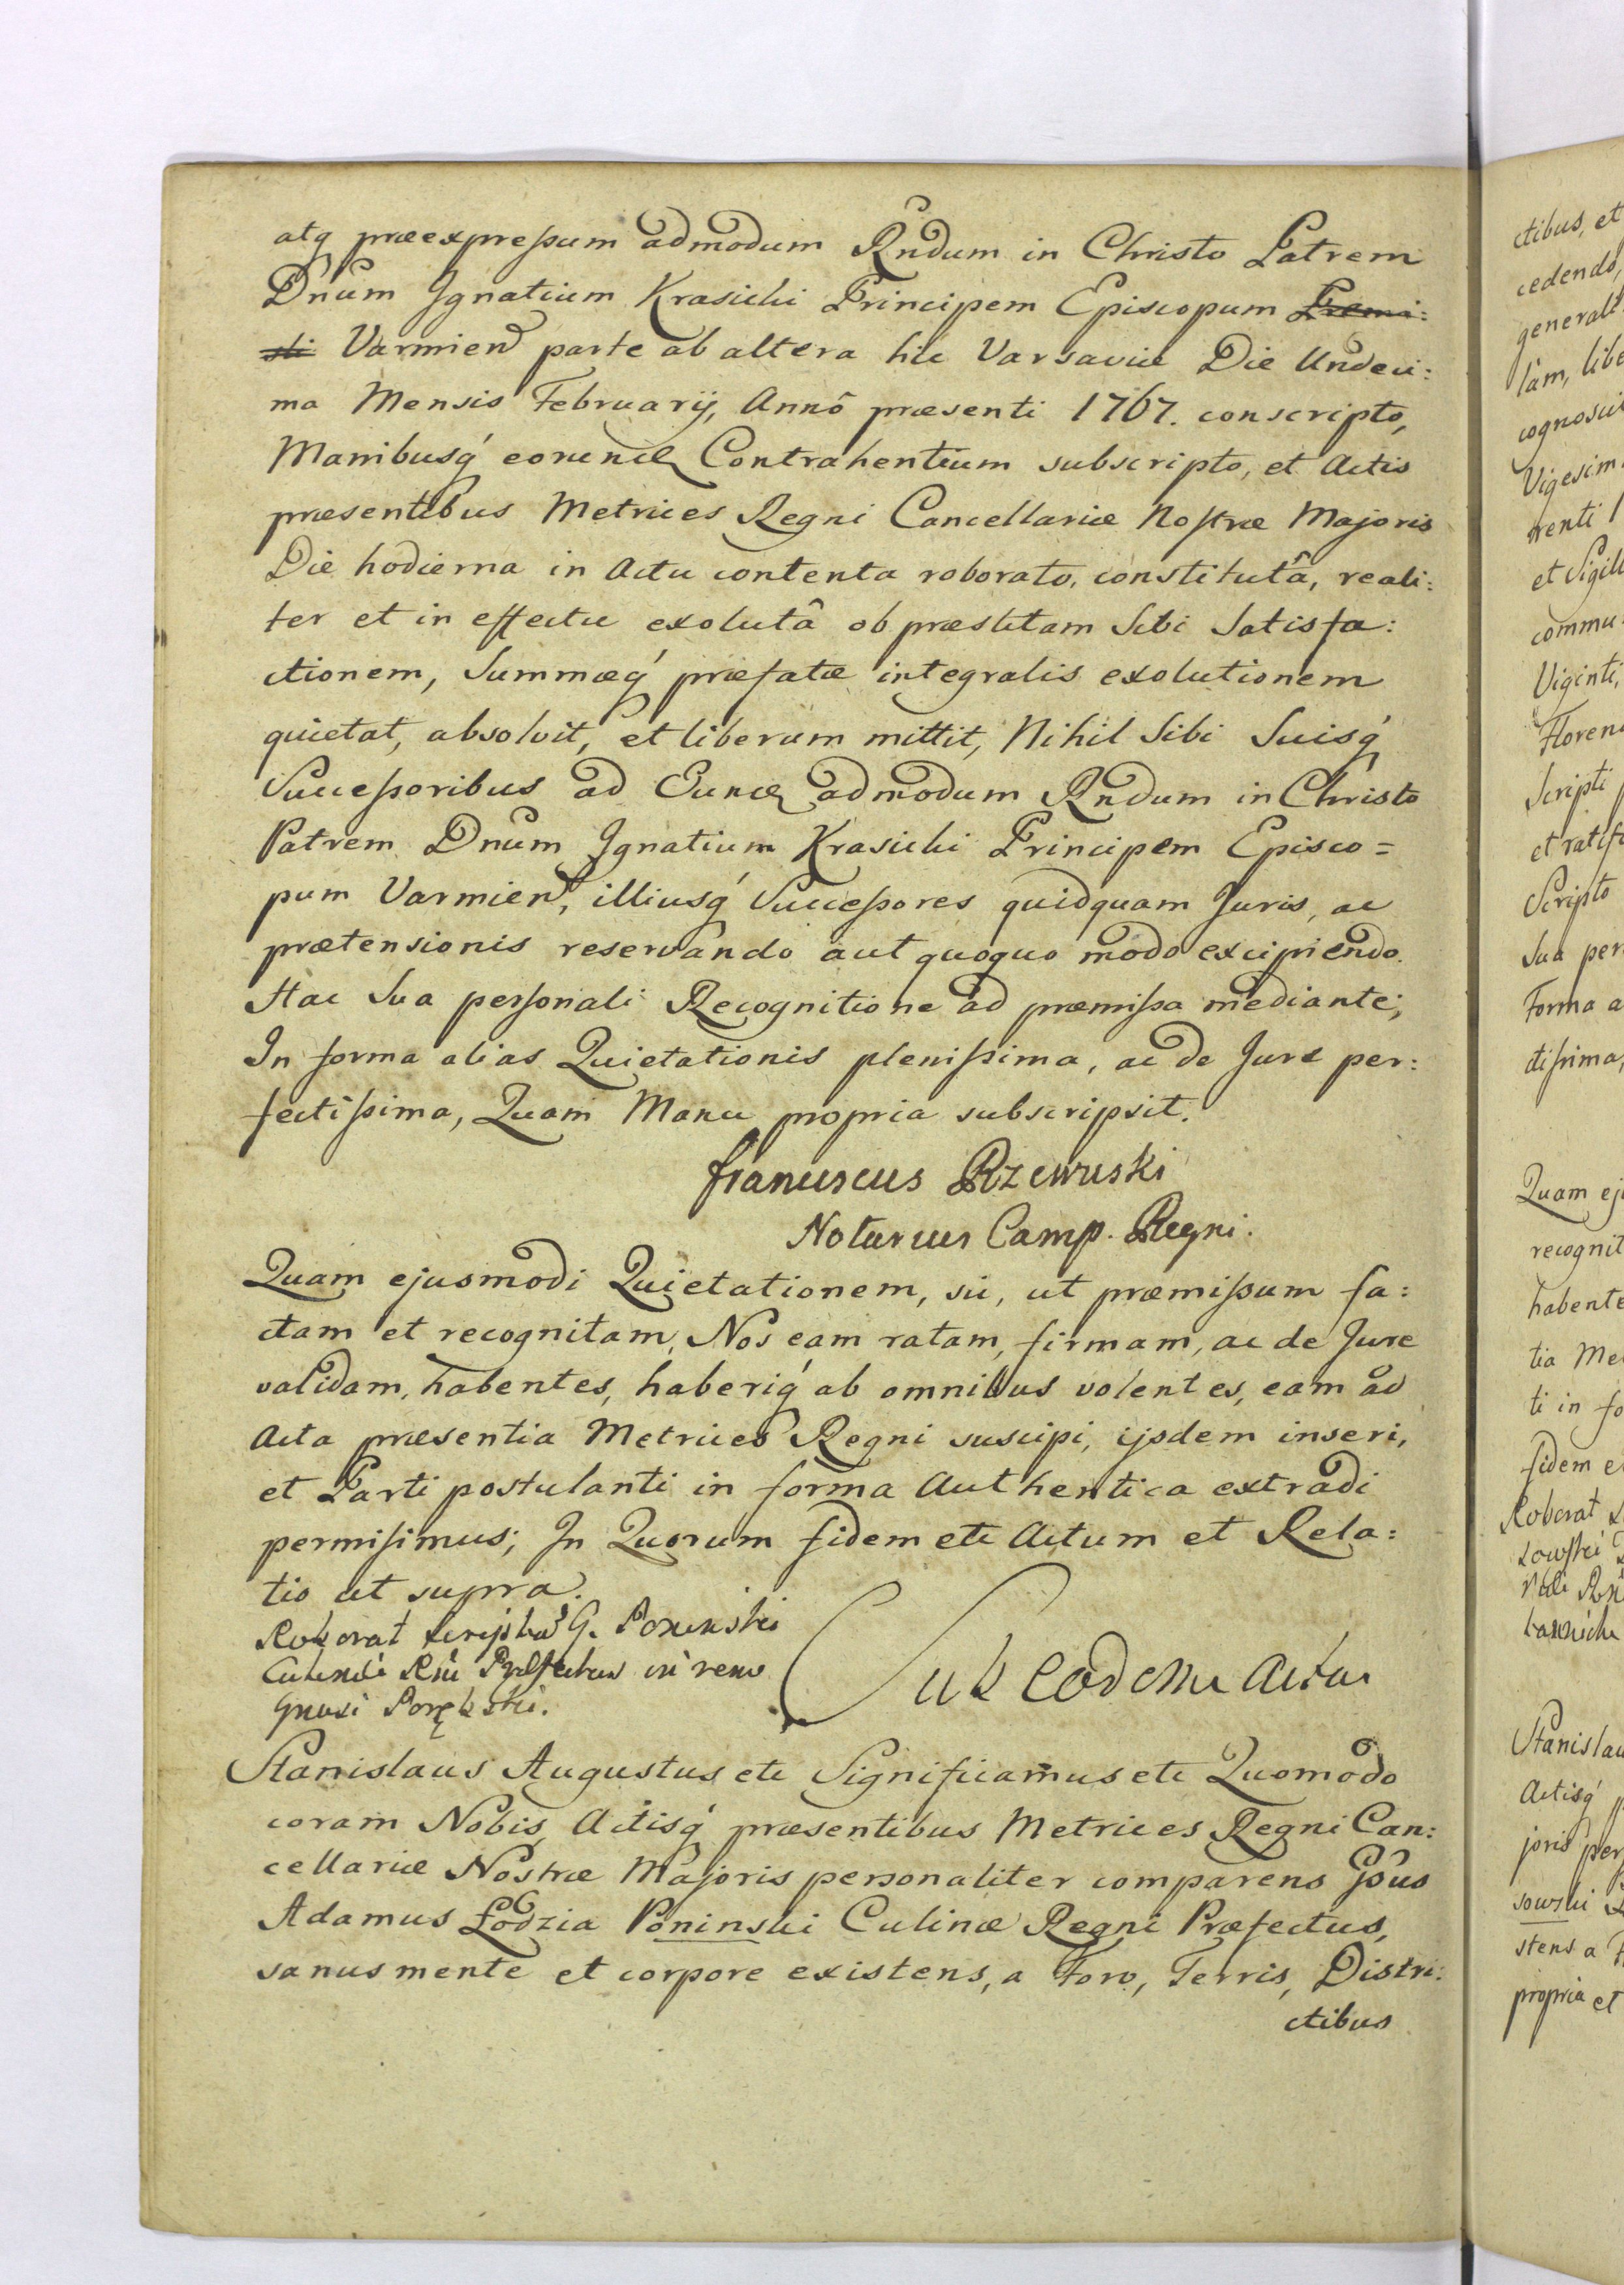 atq́ præexpreſsum admodum Rndum in Christo Patrem
Dnum Ignatium Krasicki Principem Episcopum Premi:
sli Varmien̄ parte ab altera hic Varsaviæ Die Undeci:
ma Mensis Februarij, Annô præsenti 1767. conscripto,
Manibusq́ eorund Contrahentium subscripto, et Actis
præsentibus Metrices Regni Cancellariæ Noſtræ Majoris
Die hodierna in Actu contenta roborato, constitutâ, reali:
ter et in effectu exolutâ ob præstitam Sibi Satisfa:
ctionem, Summæq́ præfatæ integralis exolutionem
quietat, absolvit, et liberum mittit, Nihil Sibi Suisq́
Succeſsoribus ad Eund admodum Rndum in Christo
Patrem Dnum Ignatium Krasicki Principem Episco=
pum Varmien̄, illiusq́ Succeſsores quidquam Juris, ac
prætensionis reservando aut quoquo modo excipiendo.
Hac Sua perſonali Recognitione ad præmiſsa mediante;
In forma alias Quietationis pleniſsima, ac de Jure per:
fectiſsima, Quam Manu propria subscripsit.
Franciscus Rzewuski
Notarius Camp. Regni.
Quam ejusmodi Quietationem, sic, ut præmiſsum fa:
ctam et recognitam, Nos eam ratam, firmam, ac de Jure
validam, habentes, haberiq́ ab omnibus volentes, eam ad
Acta præsentia Metrices Regni suscipi, ijsdem inseri,
et Parti postulanti in forma Authentica extradi
permiſimus; In Quorum fidem etc Actum et Rela:
tio ut supra.
Roborat Scriptum G. Poninski
Culinæ Rni Præfectus in rem
Gnosi Porębski.
Sub eodem Actu
Stanislaus Augustus etc Significamus etc Quomodo
coram Nobis Actisq́ præsentibus Metrices Regni Can:
cellariæ Nostræ Majoris personaliter comparens Gsus
Adamus Łodzia Poninski Culinæ Regni Præfectus,
sanus mente et corpore existens, a Foro, Terris, Distri:
ctibus
ctibus, et
cedendo,
generali
lam, libe
cognosci
Vigesim
renti 1
et Sigill
commu
Viginti,
Floren
Scripti
et ratif
Scripto
Sua per
Forma a
tiſsima,
Quam ej
recognit
habente
tia Me
ti in fo
fidem e
Roborat
Stanislau
Actisq́ p
joris per
sowski
stens a F
propria et